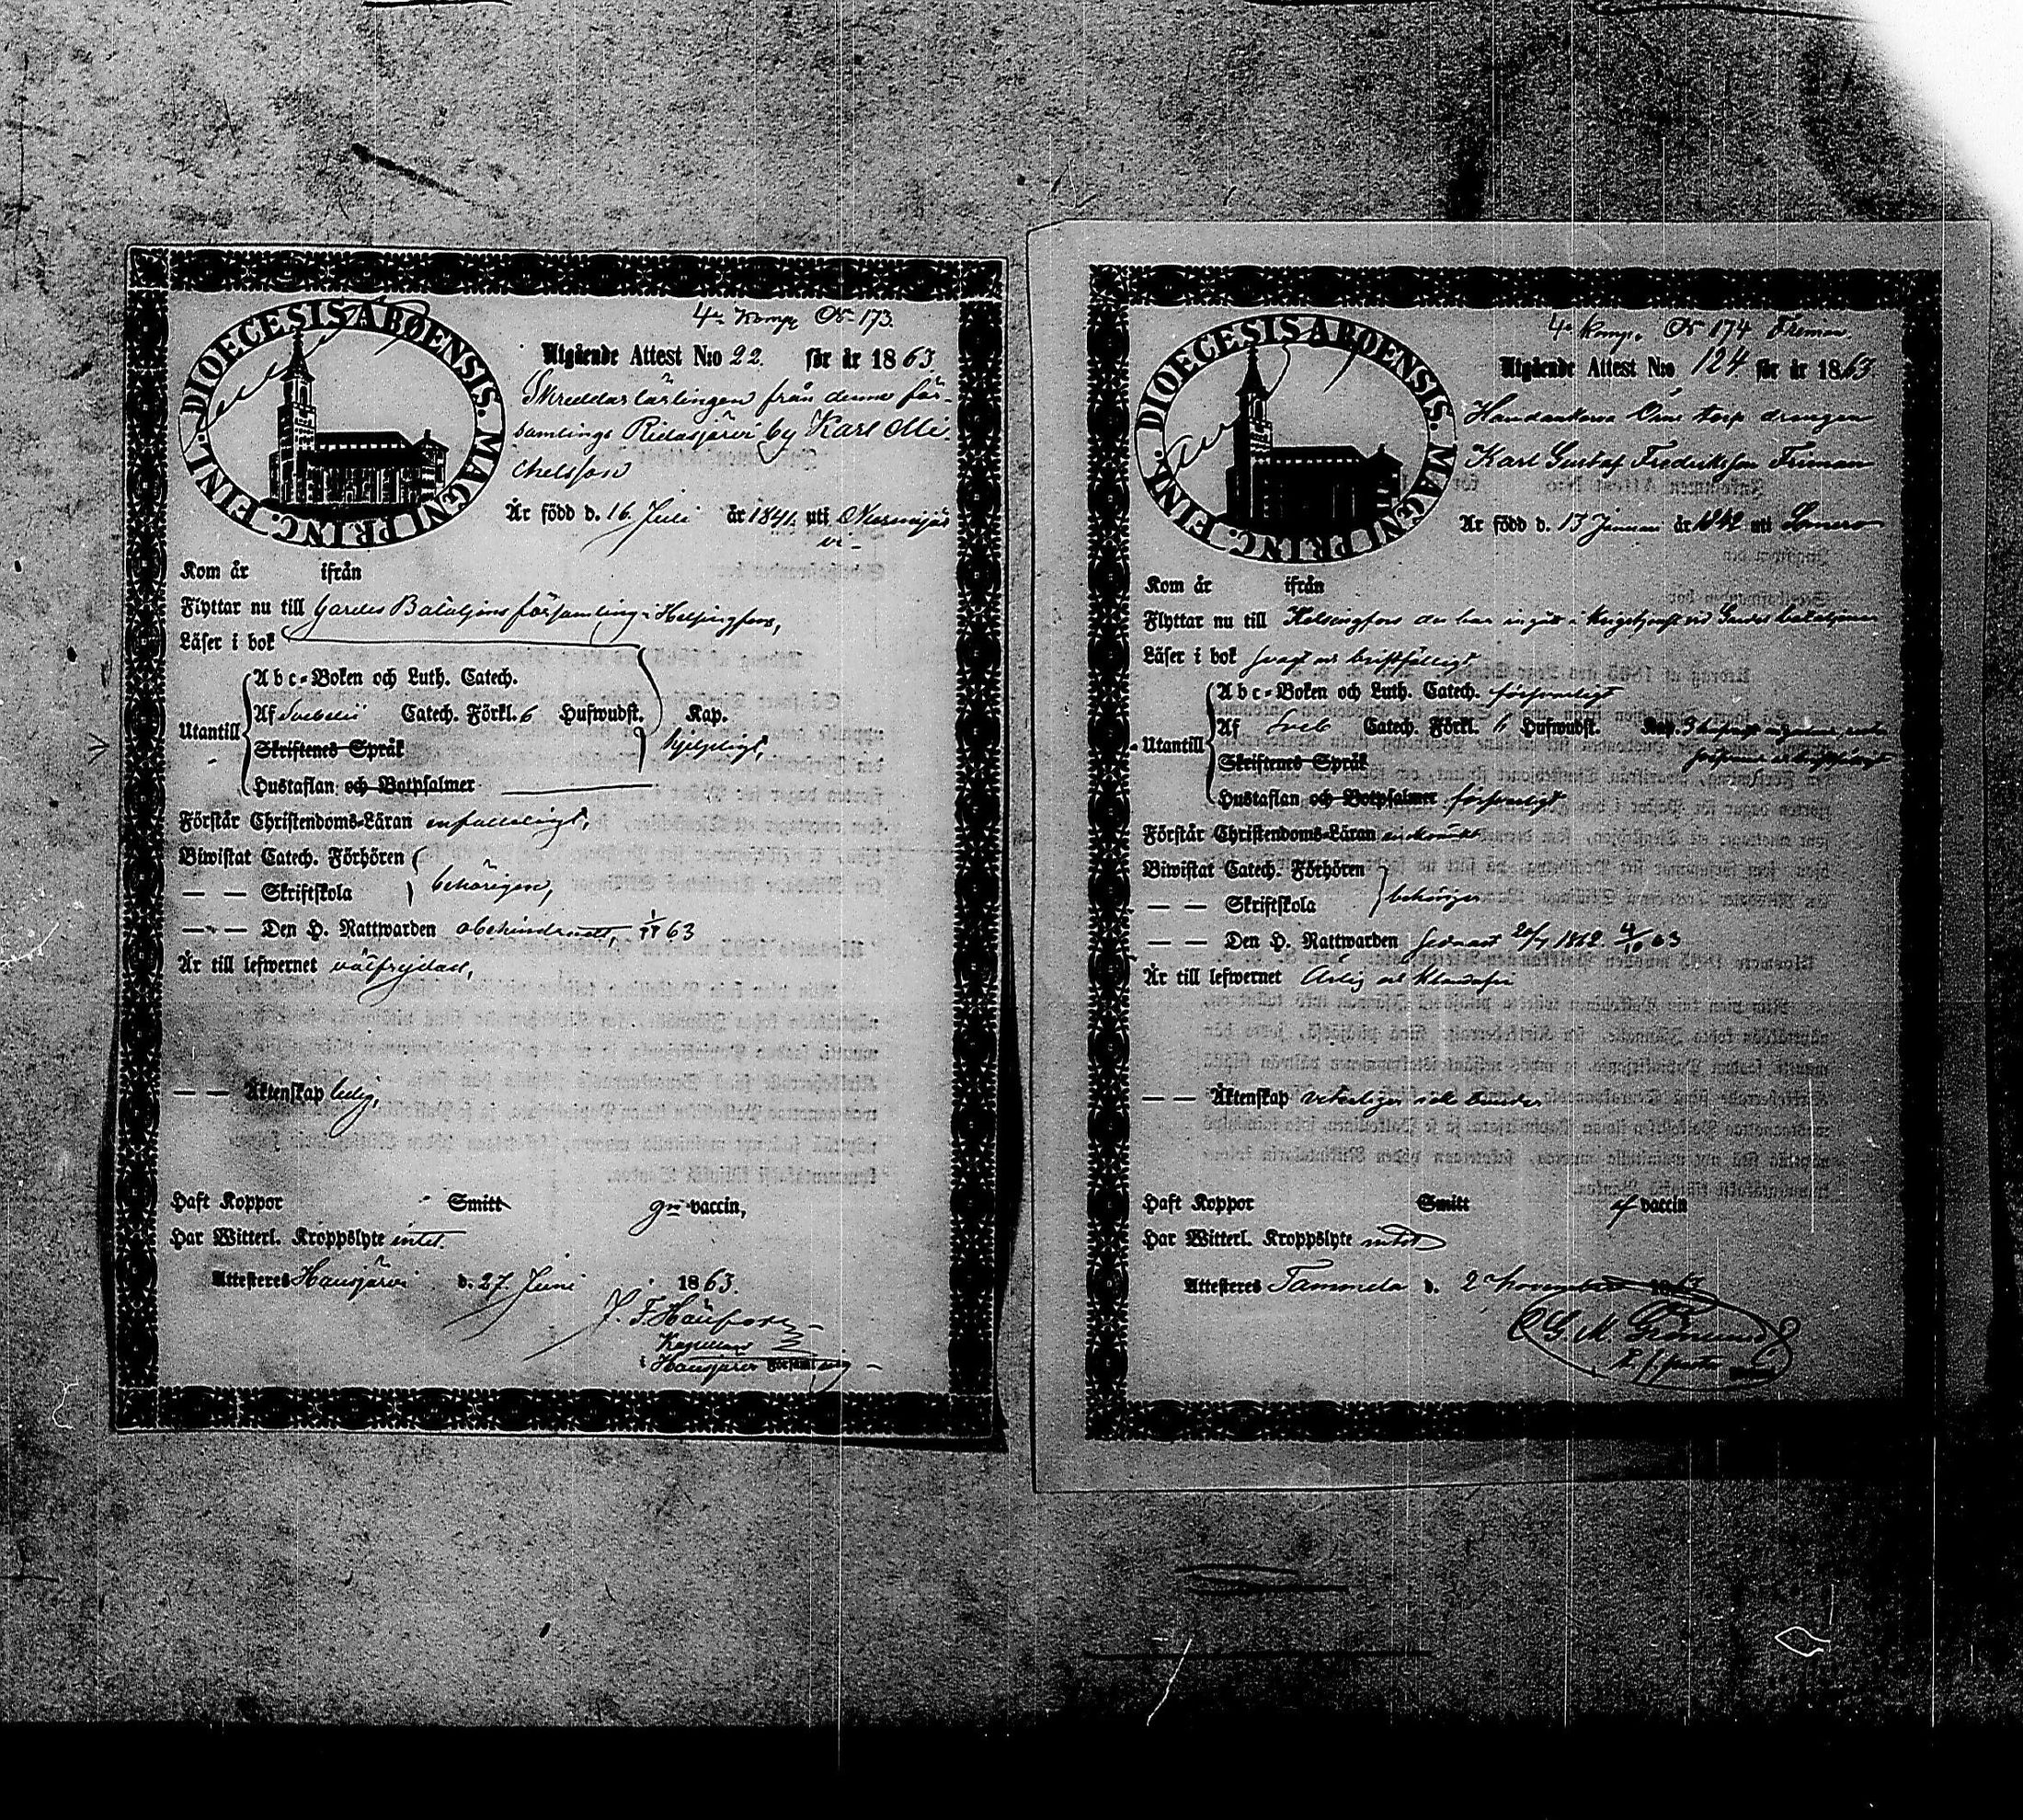 4e Komp. No 173.
DIOECESIS ABOENSIS. MAGNI PRINC. FINL.
Utgående Attest N:o 22. för år 1863.
Skreddarlärlingen från denna för-
samlings Ridasjärvi by Karl Olli
Är född d. 16 Juli år 1841. uti
Kom år ifrån
Flyttar nu till Gardes Bataljons församling i Helsingfors,
Läser i bok
Abc-Boken och Luth. Catech.
Utantill
Af Svebelii Catech. Förkl. 6 Hufwudst. Kap.
Skriftenes Språk
hjelpligt,
Hustaflan och Botpsalmer
Förstår Christendoms-Läran enfaldeligt,
Biwistat Catech. Förhören
— — Skriftskola behörigen,
— — Den H. Nattwarden obehindradt, 63
Är till lefwernet välfrejdad,
— — Äktenskap ledig,
Haft Koppor Smitt gn vaccin,
Har Witterl. Kroppslyte intet.
Attesteres Hausjärvi d. 27 Juni 1863.
J. F.
Kapellan
i Hausjärvi Församling
4e Komp. No 174 Friman
DIOECESIS ABOENSIS. MAGNI PRINC. FINL.
Utgående Attest N:o 124 för år 1863
torp drengen
Karl Gustaf Fredriksson Friman
Är född d. 13 Januari år 1842 uti Somero
Kom år ifrån
Flyttar nu till Helsingfors der han ingått i krigstjenst vid Gardes bataljonen
Läser i bok svagt och bristfälligt
Abc-Boken och Luth. Catech. försvarligt
Utantill
Af Sveb Catech. Förkl. 6 Hufwudst. Kap. 3
Skriftenes Språk
Hustaflan och Botpsalmer försvarligt
Förstår Christendoms-Läran
Biwistat Catech. Förhören
— — Skriftskola behörigen
— — Den H. Nattwarden 1862. 4/10 63
Är till lefwernet Ärlig och
— — Äktenskap veterligen icke bunden
Haft Koppor Smitt af vaccin
Har Witterl. Kroppslyte intet
Attesteres Tammela d. 2 November 1863